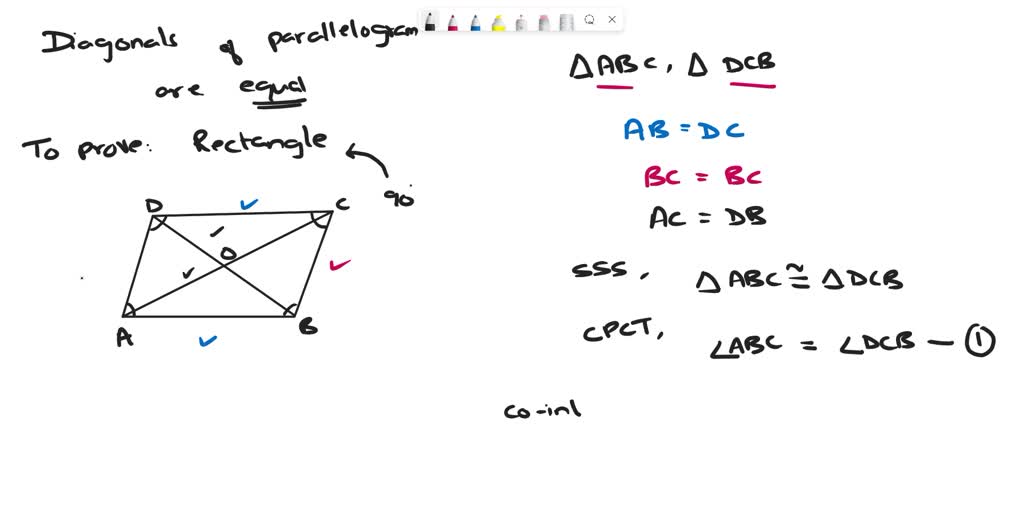 Diagonals of parallelogram
are equal
To prove: Rectangle
90°
D
C
O
A
B
Δ ABC, Δ DCB
AB = DC
BC = BC
AC = DB
SSS, Δ ABC ≅ Δ DCB
CPCT, ∠ABC = ∠DCB — ①
co-inl